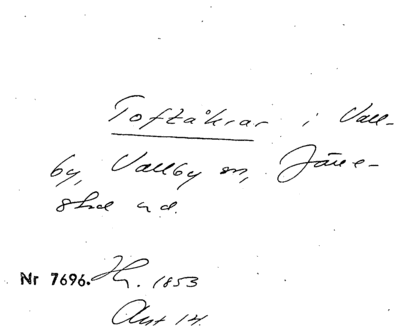 Toftåkrar i Vall-
by, Vallby sn, Järre-
stad hd.
Nr 7696. Hr. 1853
Ant 14.